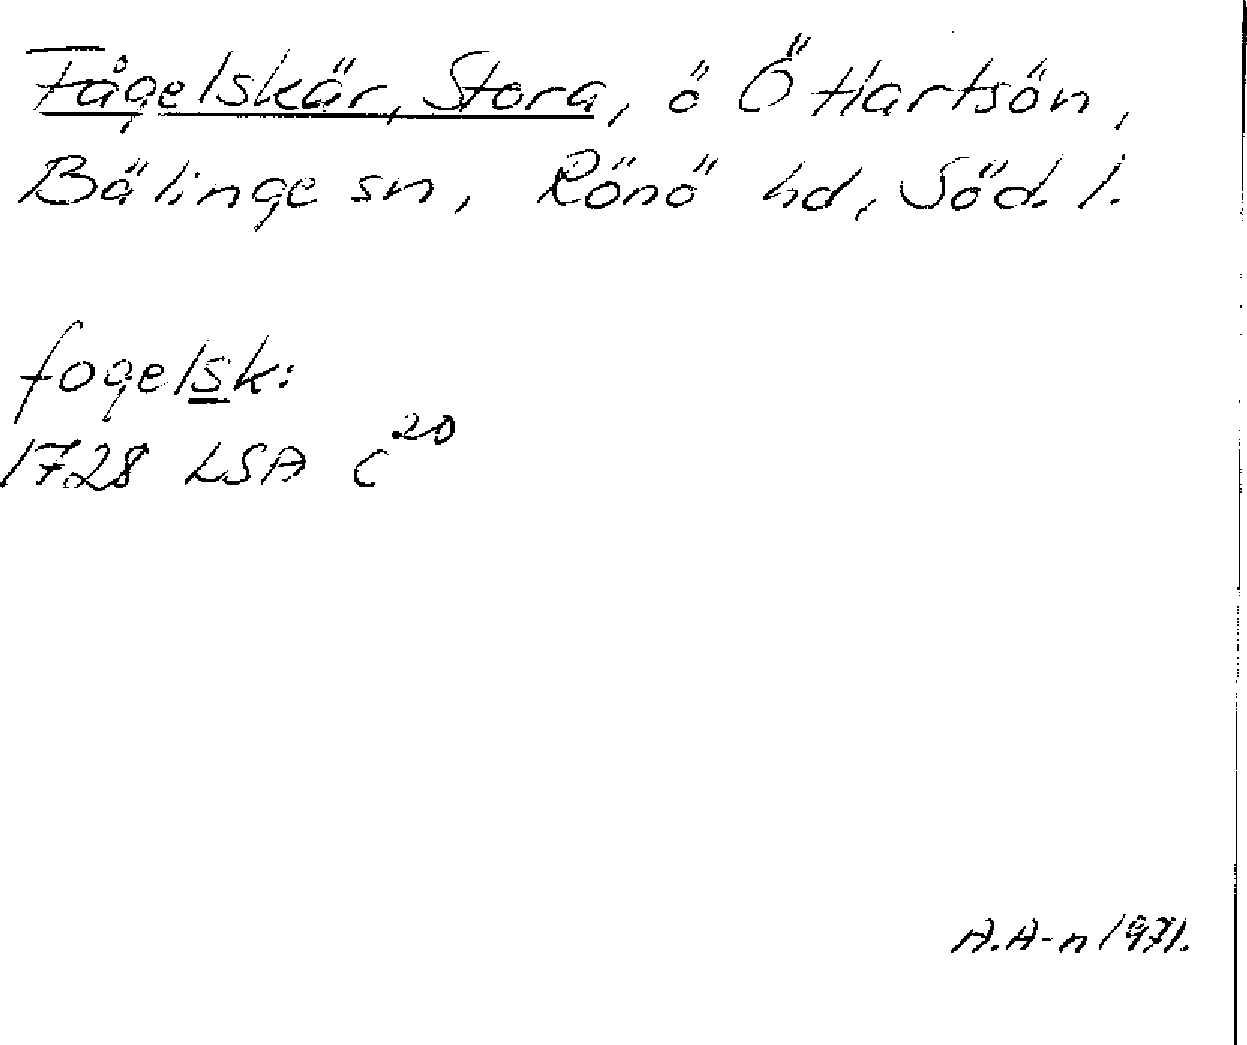 Fågelskär, Stora, ö Ö Hartsön,
Bälinge sn, Rönö hd, Söd. l.
fogelsk:
1728 LSA C20
A.A-n 1971.